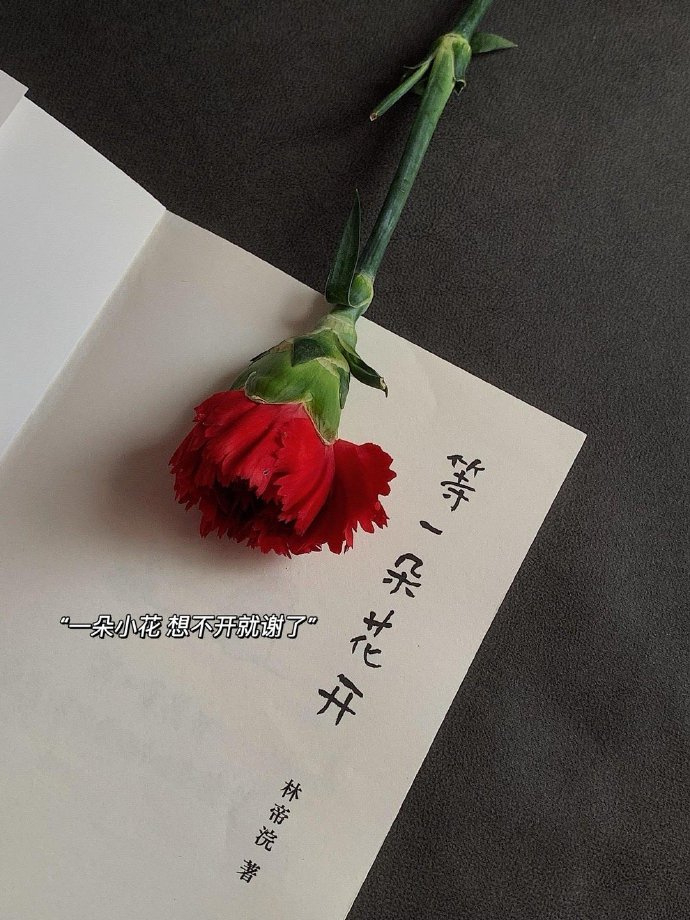 等一朵花开
“一朵小花 想不开就谢了”
林帝浣 著